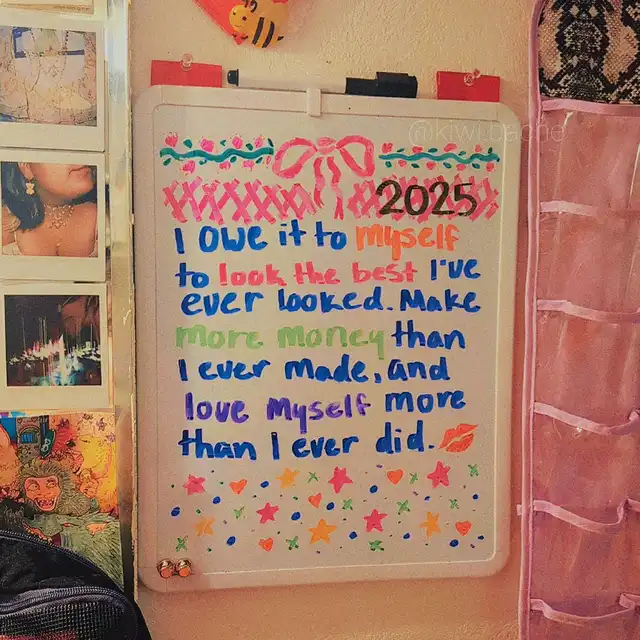 2025
I owe it to myself
to look the best I've
ever looked. Make
more money than
I ever made, and
love myself more
than I ever did.